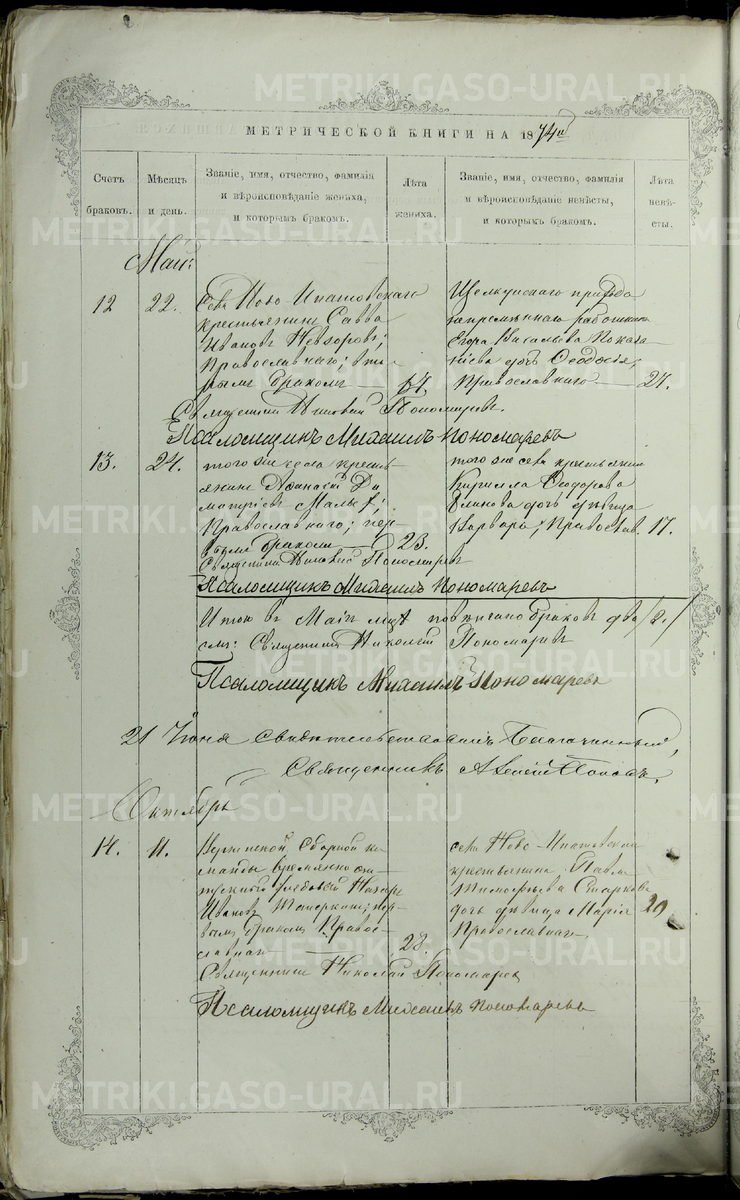 МЕТРИЧЕСКОЙ КНИГИ НА 1874й
Счетъ браковъ.
Мѣсяцъ и день.
Званіе, имя, отчество, фамилія
и вѣроисповѣданіе жениха,
и которымъ бракомъ.
Лѣта жениха.
Званіе, имя, отчество, фамилія
и вѣроисповѣданіе невѣсты,
и которымъ бракомъ.
Лѣта невѣсты.
Май:
12 22. Села Ново Ипатовскаго
крестьянинъ Савва
Ивановъ Невзоровъ,
Православнаго; вто-
рымъ бракомъ
Щелкунскаго прихода
Егора Васильева
дочь Ѳеодосія,
Православнаго 27.
Священникъ Николай Пономаревъ.
Псаломщикъ Михаилъ Пономаревъ
13. 24. того же села кресть-
янинъ Аѳанасій Ди-
митріевъ
Православнаго; пер-
вымъ бракомъ 23.
того же села крестьянина
Кирилла Ѳеодорова
Блинова дочь дѣвица
Варвара, Православ. 17.
Священникъ Николай Пономаревъ
Псаломщикъ Михаилъ Пономаревъ
Итого въ Маѣ мцѣ повѣнчано браковъ два /2./
Священникъ Николай Пономаревъ
Псаломщикъ Михаилъ Пономаревъ
21 Іюня свидѣтельствовалъ Благочинный,
Священникъ Алексей Поповъ.
Октябрь
14. 11. сборной ко-
манды временно от-
пускной рядовой Назаръ
Ивановъ пер-
вымъ бракомъ Право-
славнаго 28.
села Ново-Ипатовскаго
крестьянина Павла
Тимоѳеева Старкова
дочь дѣвица Марія 20
Православнаго
Священникъ Николай Пономаревъ
Псаломщикъ Михаилъ Пономаревъ
METRIKI.GASO-URAL.RU